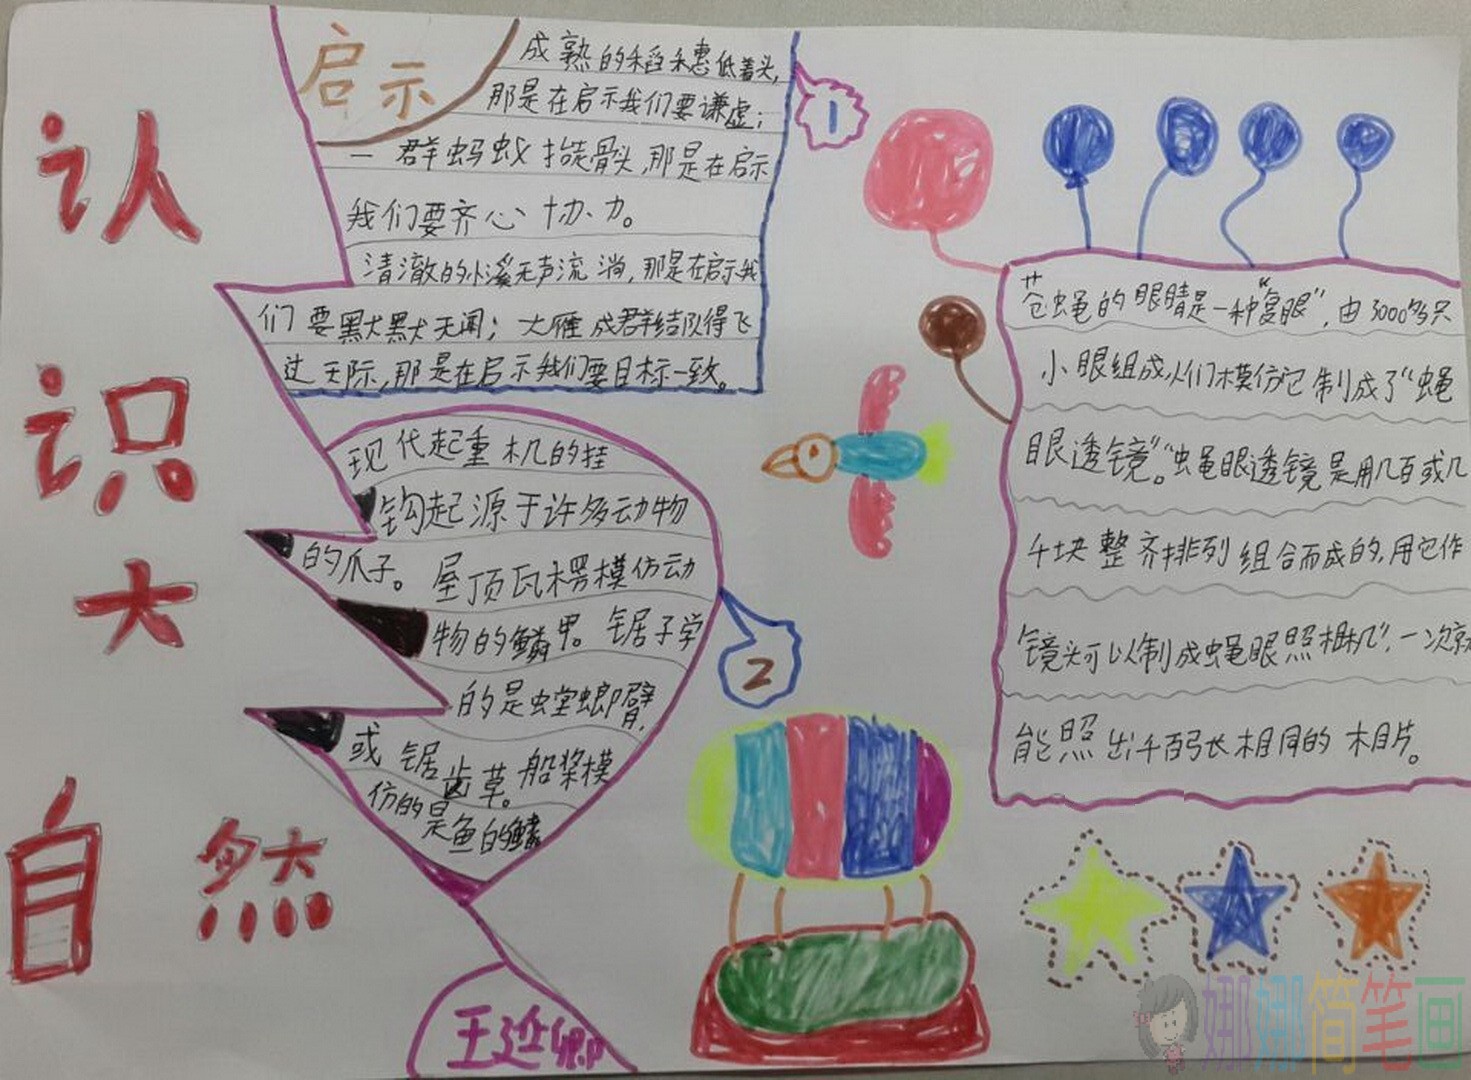 认
识
大
自 然
启示
成熟的稻穗低着头,
那是在启示我们要谦虚;
一群蚂蚁抬骨头,那是在启示
我们要齐心协力。
清澈的小溪无声流淌,那是在启示我
们要默默无闻;大雁成群结队得飞
过天际,那是在启示我们要目标一致。
1
现代起重机的挂
钩起源于许多动物
的爪子。屋顶瓦楞模仿动
物的鳞甲。锯子学
的是螳螂臂,
或锯齿草。船桨模
仿的是鱼的鳍
2
王
苍蝇的眼睛是一种“复眼”,由3000多只
小眼组成人们模仿它制成了“蝇
眼透镜”。“虫蝇眼透镜是用几百或几
千块整齐排列组合而成的,用它作
镜头可以制成蝇眼照相机”,一次就
能照出千百张相同的相片。
娜娜简笔画